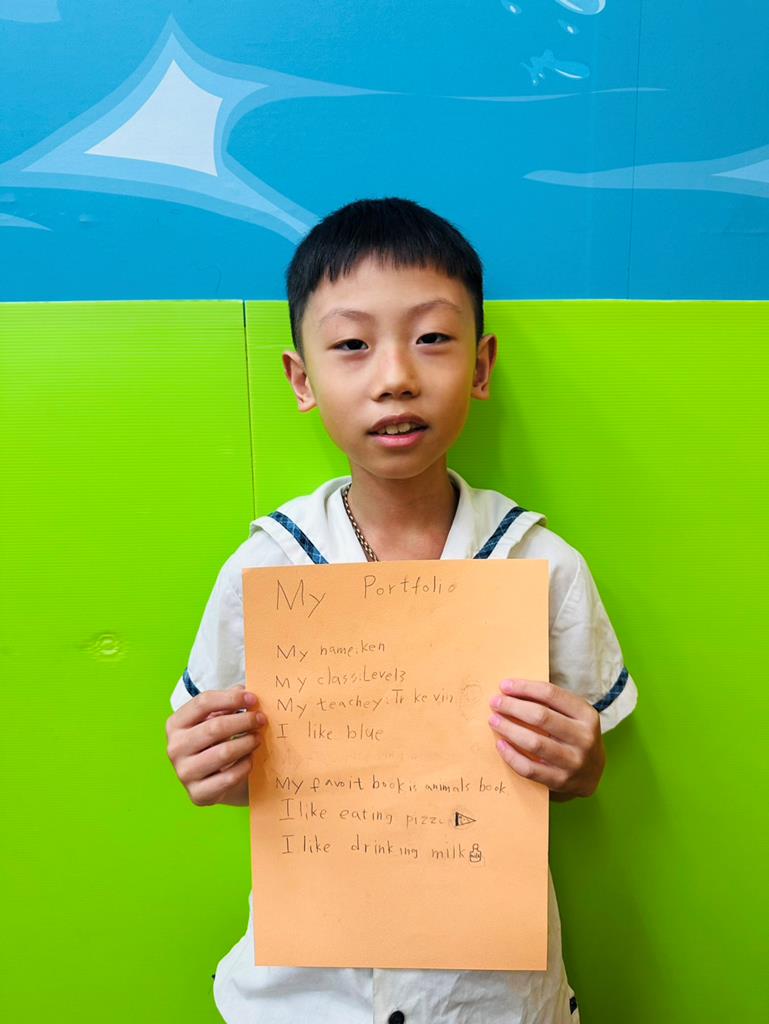 My Portfolio
My name:ken
My class:Level3
My teachey:Tr kevin
I like blue
My favoit book is animals book.
I like eating pizz
I like drinking milk